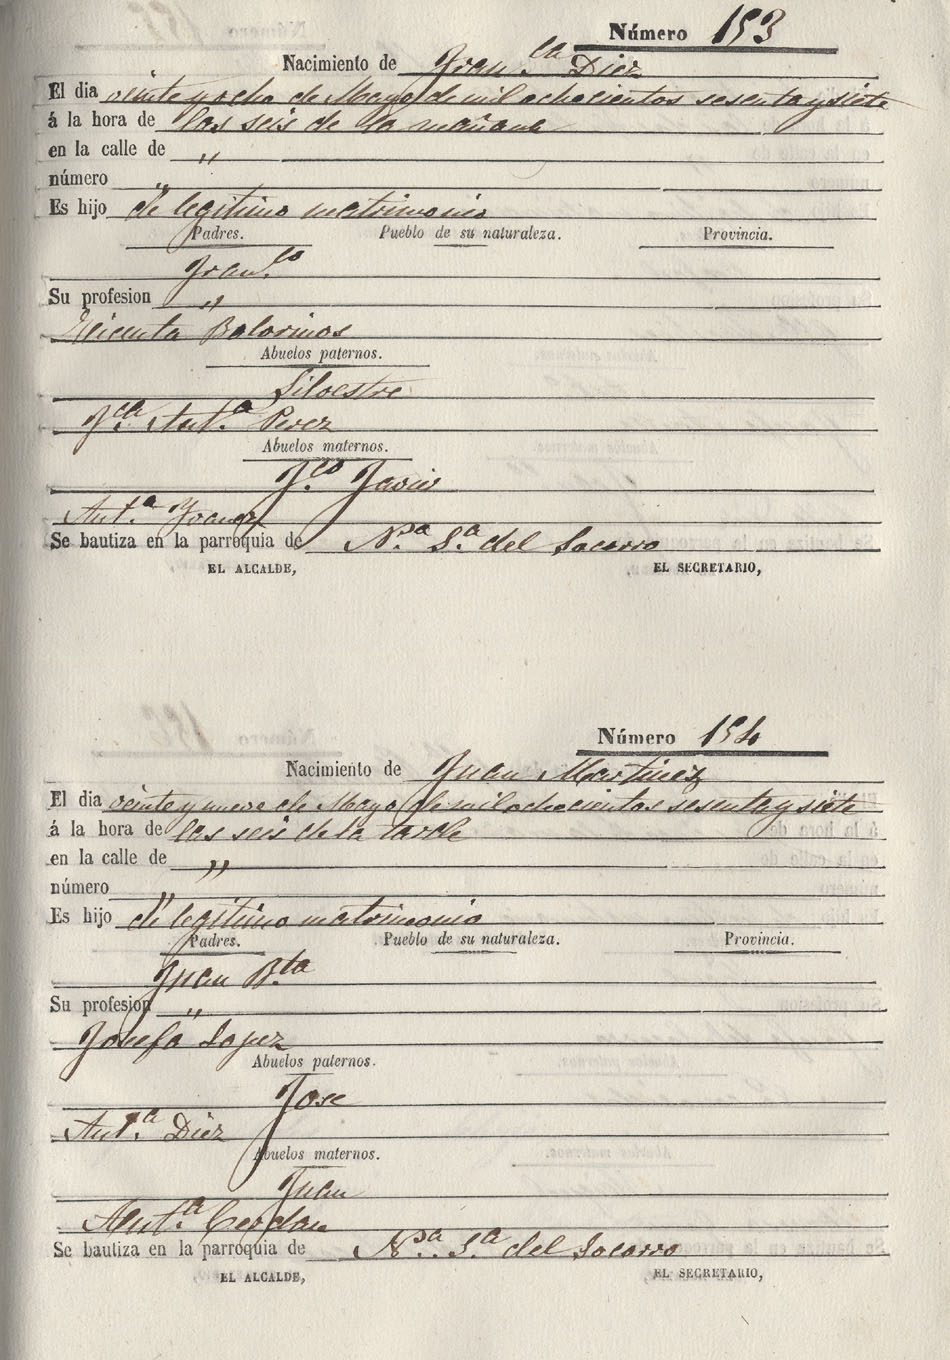 Número 153
Nacimiento de Fran.ca Diez
El dia veinte y ocho de Mayo de mil ochocientos sesenta y siete
á la hora de las seis de la mañana
en la calle de „
número „
Es hijo de legitimo matrimonio
Padres. Pueblo de su naturaleza. Provincia.
Fran.co
Su profesion „
Vicenta Bolarinos
Abuelos paternos.
Silvestre
F.ca Ant.a Perez
Abuelos maternos.
F.co Javier
Ant.a
Se bautiza en la parroquia de N.ra S.a del Socorro
EL ALCALDE, EL SECRETARIO,
Número 154
Nacimiento de Juan Martinez
El dia veinte y nueve de Mayo de mil ochocientos sesenta y siete
á la hora de las seis de la tarde
en la calle de „
número „
Es hijo de legitimo matrimonio
Padres. Pueblo de su naturaleza. Provincia.
Juan B.ta
Su profesion „
Josefa Lopez
Abuelos paternos.
Jose
Ant.a Diez
Abuelos maternos.
Juan
Ant.a Cerdan
Se bautiza en la parroquia de N.ra S.a del Socorro
EL ALCALDE, EL SECRETARIO,